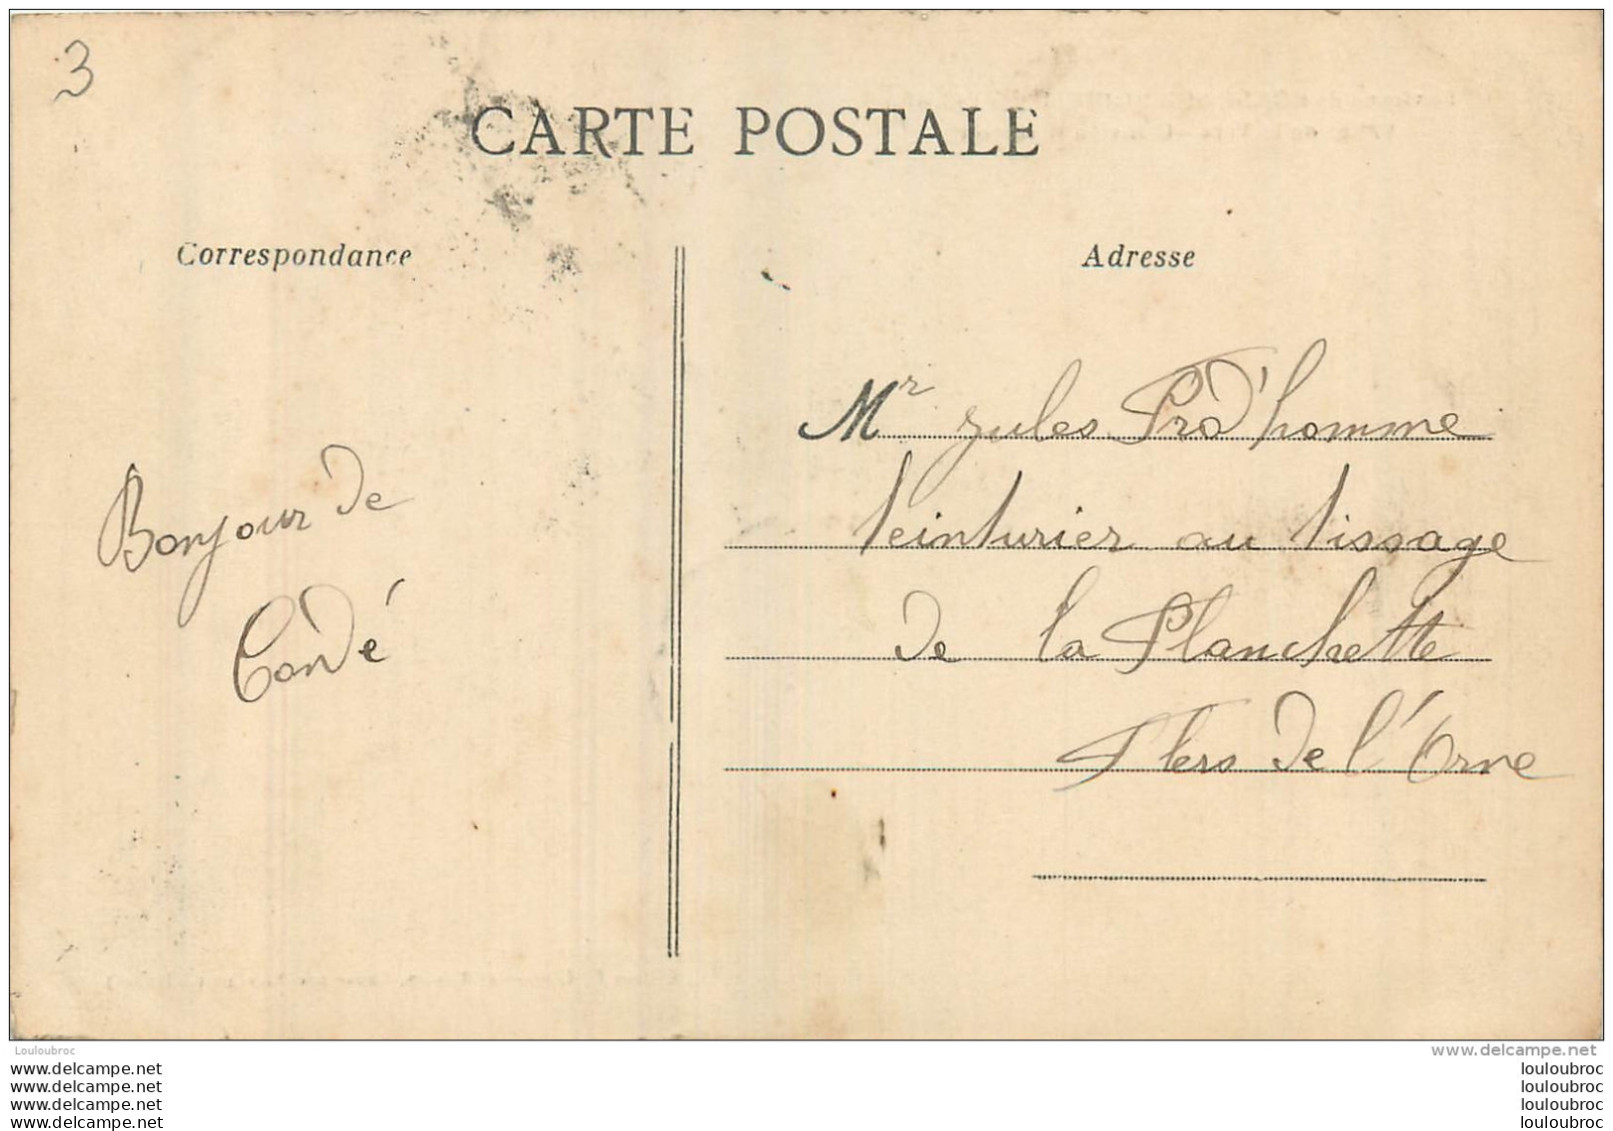 3
CARTE POSTALE
Correspondance
Adresse
Bonjour de
Condé
Mr Jules Prod'homme
teinturier au tissage
de la Planchette
Flers de l'Orne
Louloubroc
www.delcampe.net
www.delcampe.net
louloubroc
www.delcampe.net
louloubroc
www.delcampe.net
louloubroc
www.delcampe.net
louloubroc